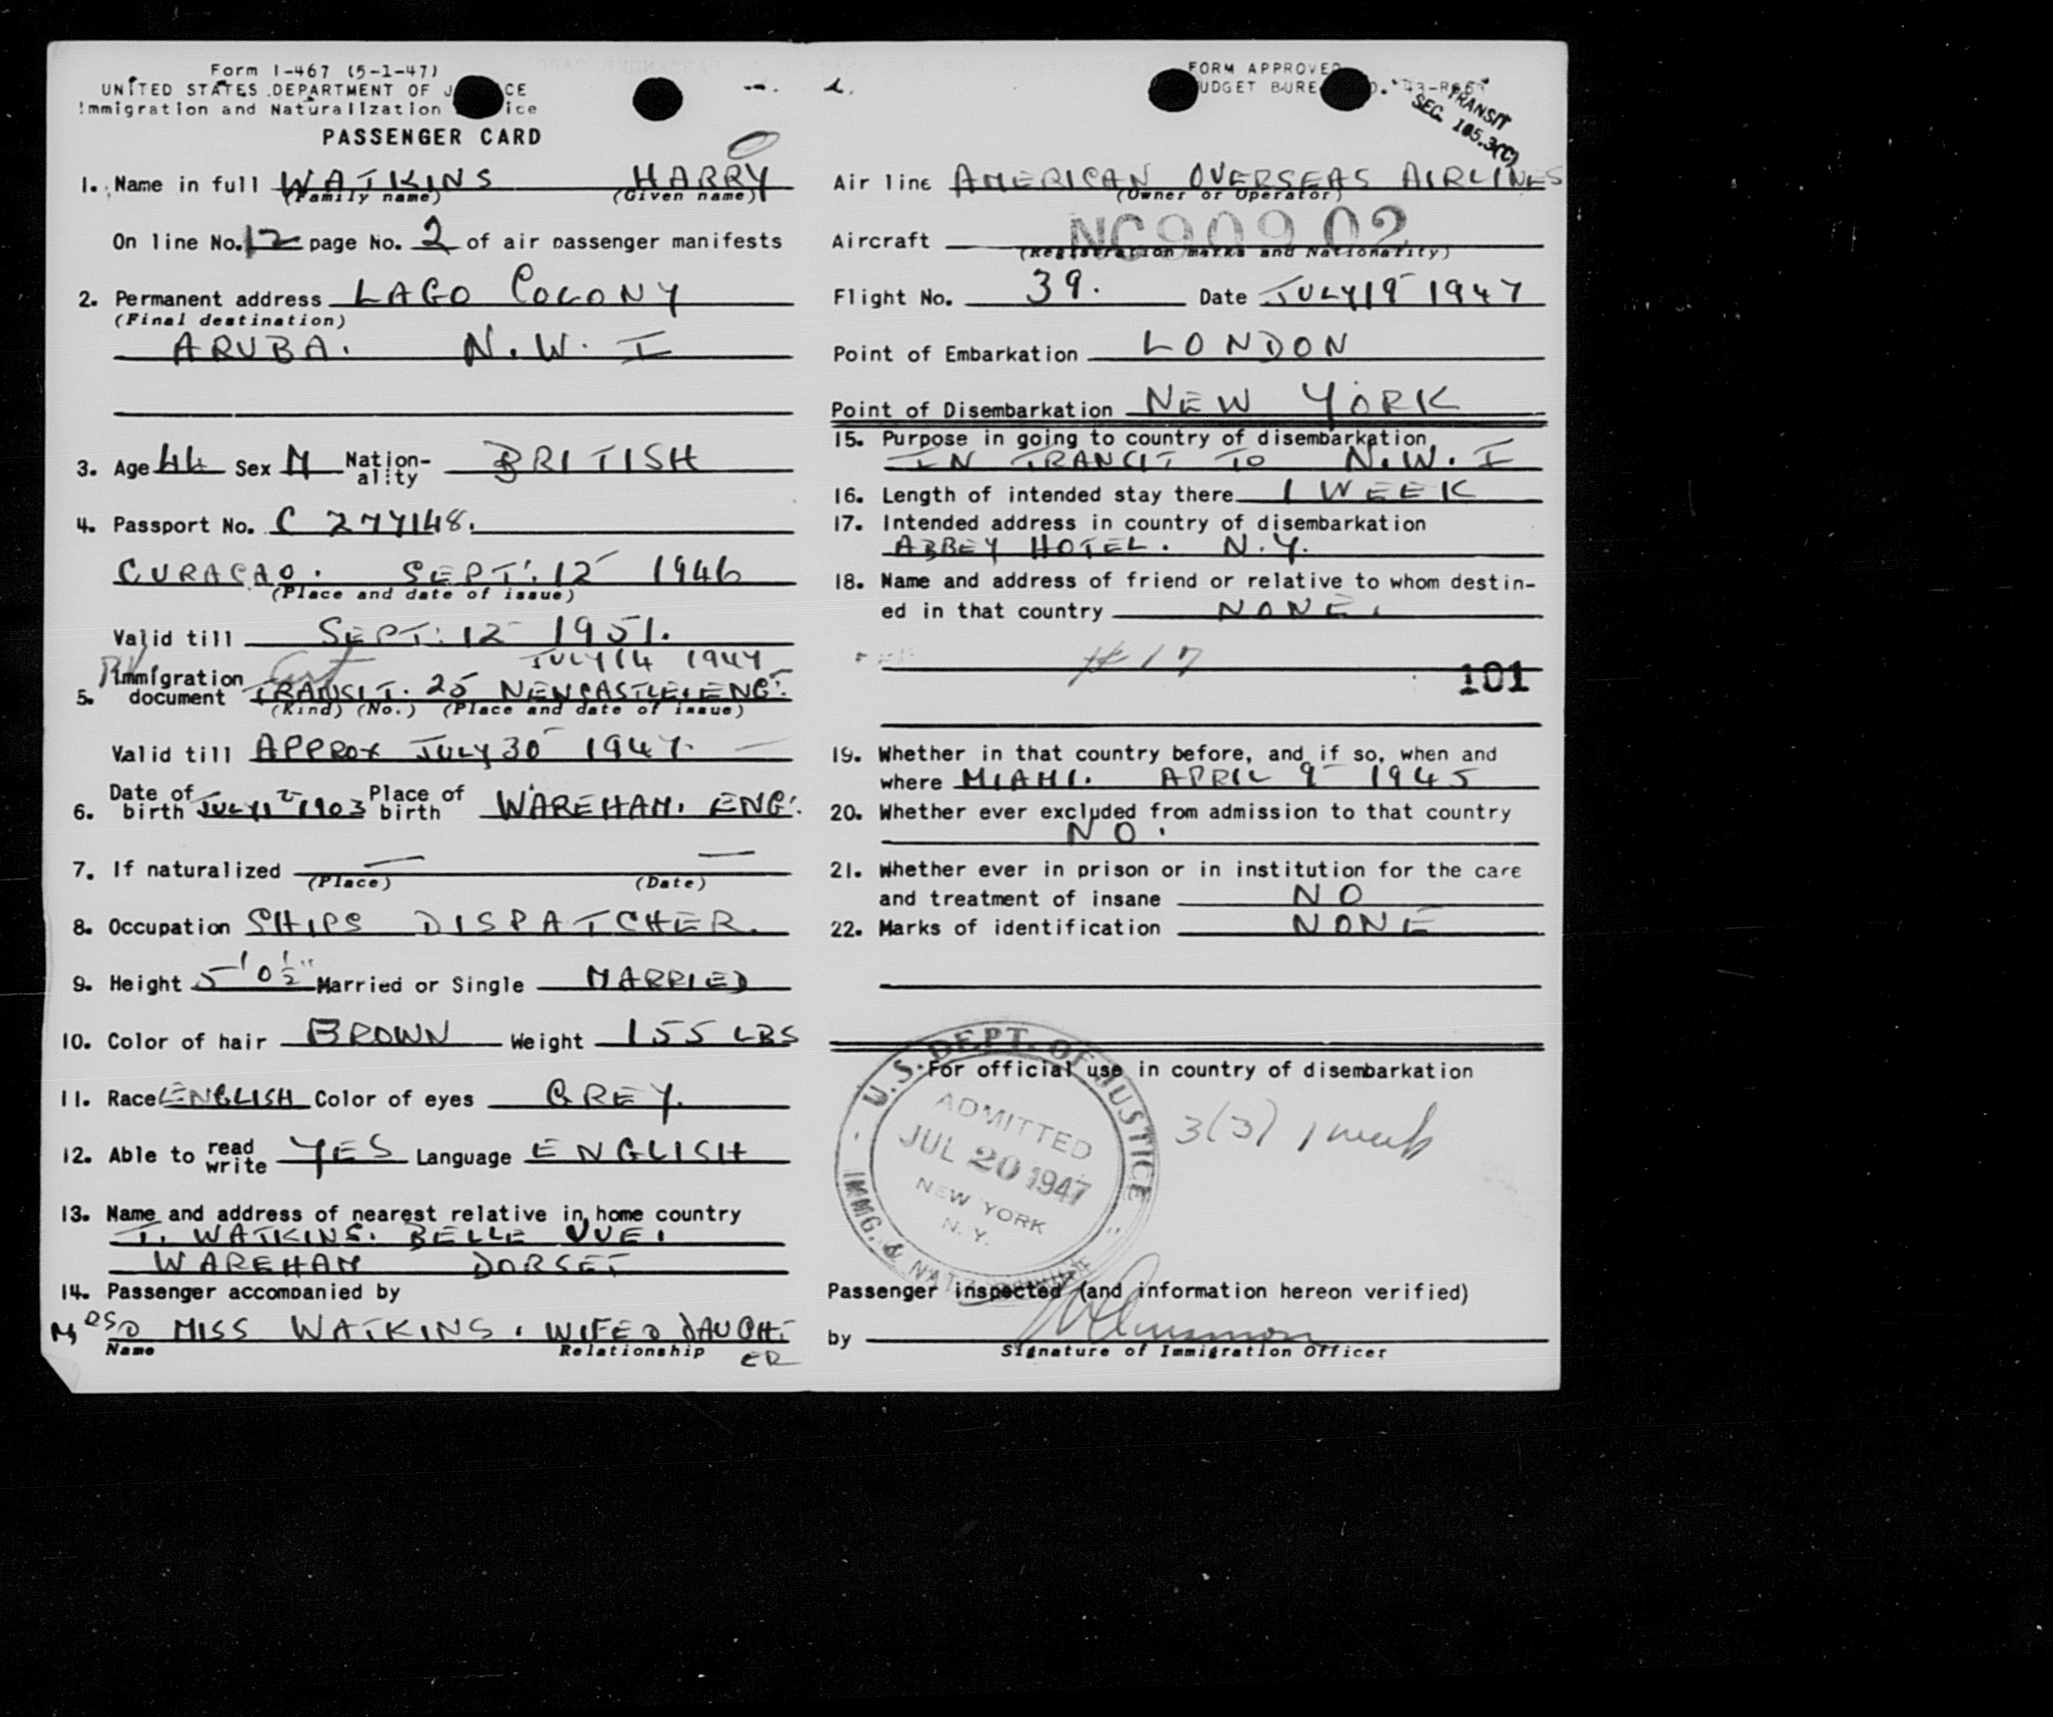 Form I-467 (5-1-47)
UNITED STATES DEPARTMENT OF J CE
Immigration and Naturalization ice
PASSENGER CARD
1. Name in full WATKINS HARRY
(Family name) (Given name)
On line No. 12 page No. 2 of air passenger manifests
2. Permanent address LAGO COLONY
(Final destination)
ARUBA. N.W.I
3. Age 44 Sex M Nation-ality BRITISH
4. Passport No. C 277148.
CURACAO. SEPT. 12 1946
(Place and date of issue)
Valid till SEPT. 12 1951.
JULY 14 1947
5. Immigration document TRANSIT. 25 NEWCASTLE. ENG.
(Kind) (No.) (Place and date of issue)
Valid till APPROX JULY 30 1947.
6. Date of birth JULY 12 1903 Place of birth WAREHAM. ENG.
7. If naturalized — —
(Place) (Date)
8. Occupation SHIPS DISPATCHER.
9. Height 5' 0 1/2" Married or Single MARRIED
10. Color of hair BROWN Weight 155 LBS
11. Race ENGLISH Color of eyes GREY.
12. Able to read write YES Language ENGLISH
13. Name and address of nearest relative in home country
T. WATKINS. BELLE VUE.
WAREHAM DORSET
14. Passenger accompanied by
MISS WATKINS. WIFE & DAUGHT-
ER
Name Relationship
FORM APPROVED
UDGET BURE
TRANSIT
SEC. 105.3(C)
Air line AMERICAN OVERSEAS AIRLINES
(Owner or Operator)
Aircraft NC90902
(Registration marks and Nationality)
Flight No. 39. Date JULY 19 1947
Point of Embarkation LONDON
Point of Disembarkation NEW YORK
15. Purpose in going to country of disembarkation
IN TRANSIT TO N.W.I
16. Length of intended stay there 1 WEEK
17. Intended address in country of disembarkation
ABBEY HOTEL. N.Y.
18. Name and address of friend or relative to whom destin-
ed in that country NONE.
# 17
101
19. Whether in that country before, and if so, when and
where MIAMI. APRIL 9 1945
20. Whether ever excluded from admission to that country
NO.
21. Whether ever in prison or in institution for the care
and treatment of insane NO
22. Marks of identification NONE
For official use in country of disembarkation
U.S. DEPT. OF JUSTICE
ADMITTED
JUL 20 1947
NEW YORK
N.Y.
IMMG. & NATZ.
3(3) 1 week
Passenger inspected (and information hereon verified)
by
Signature of Immigration Officer